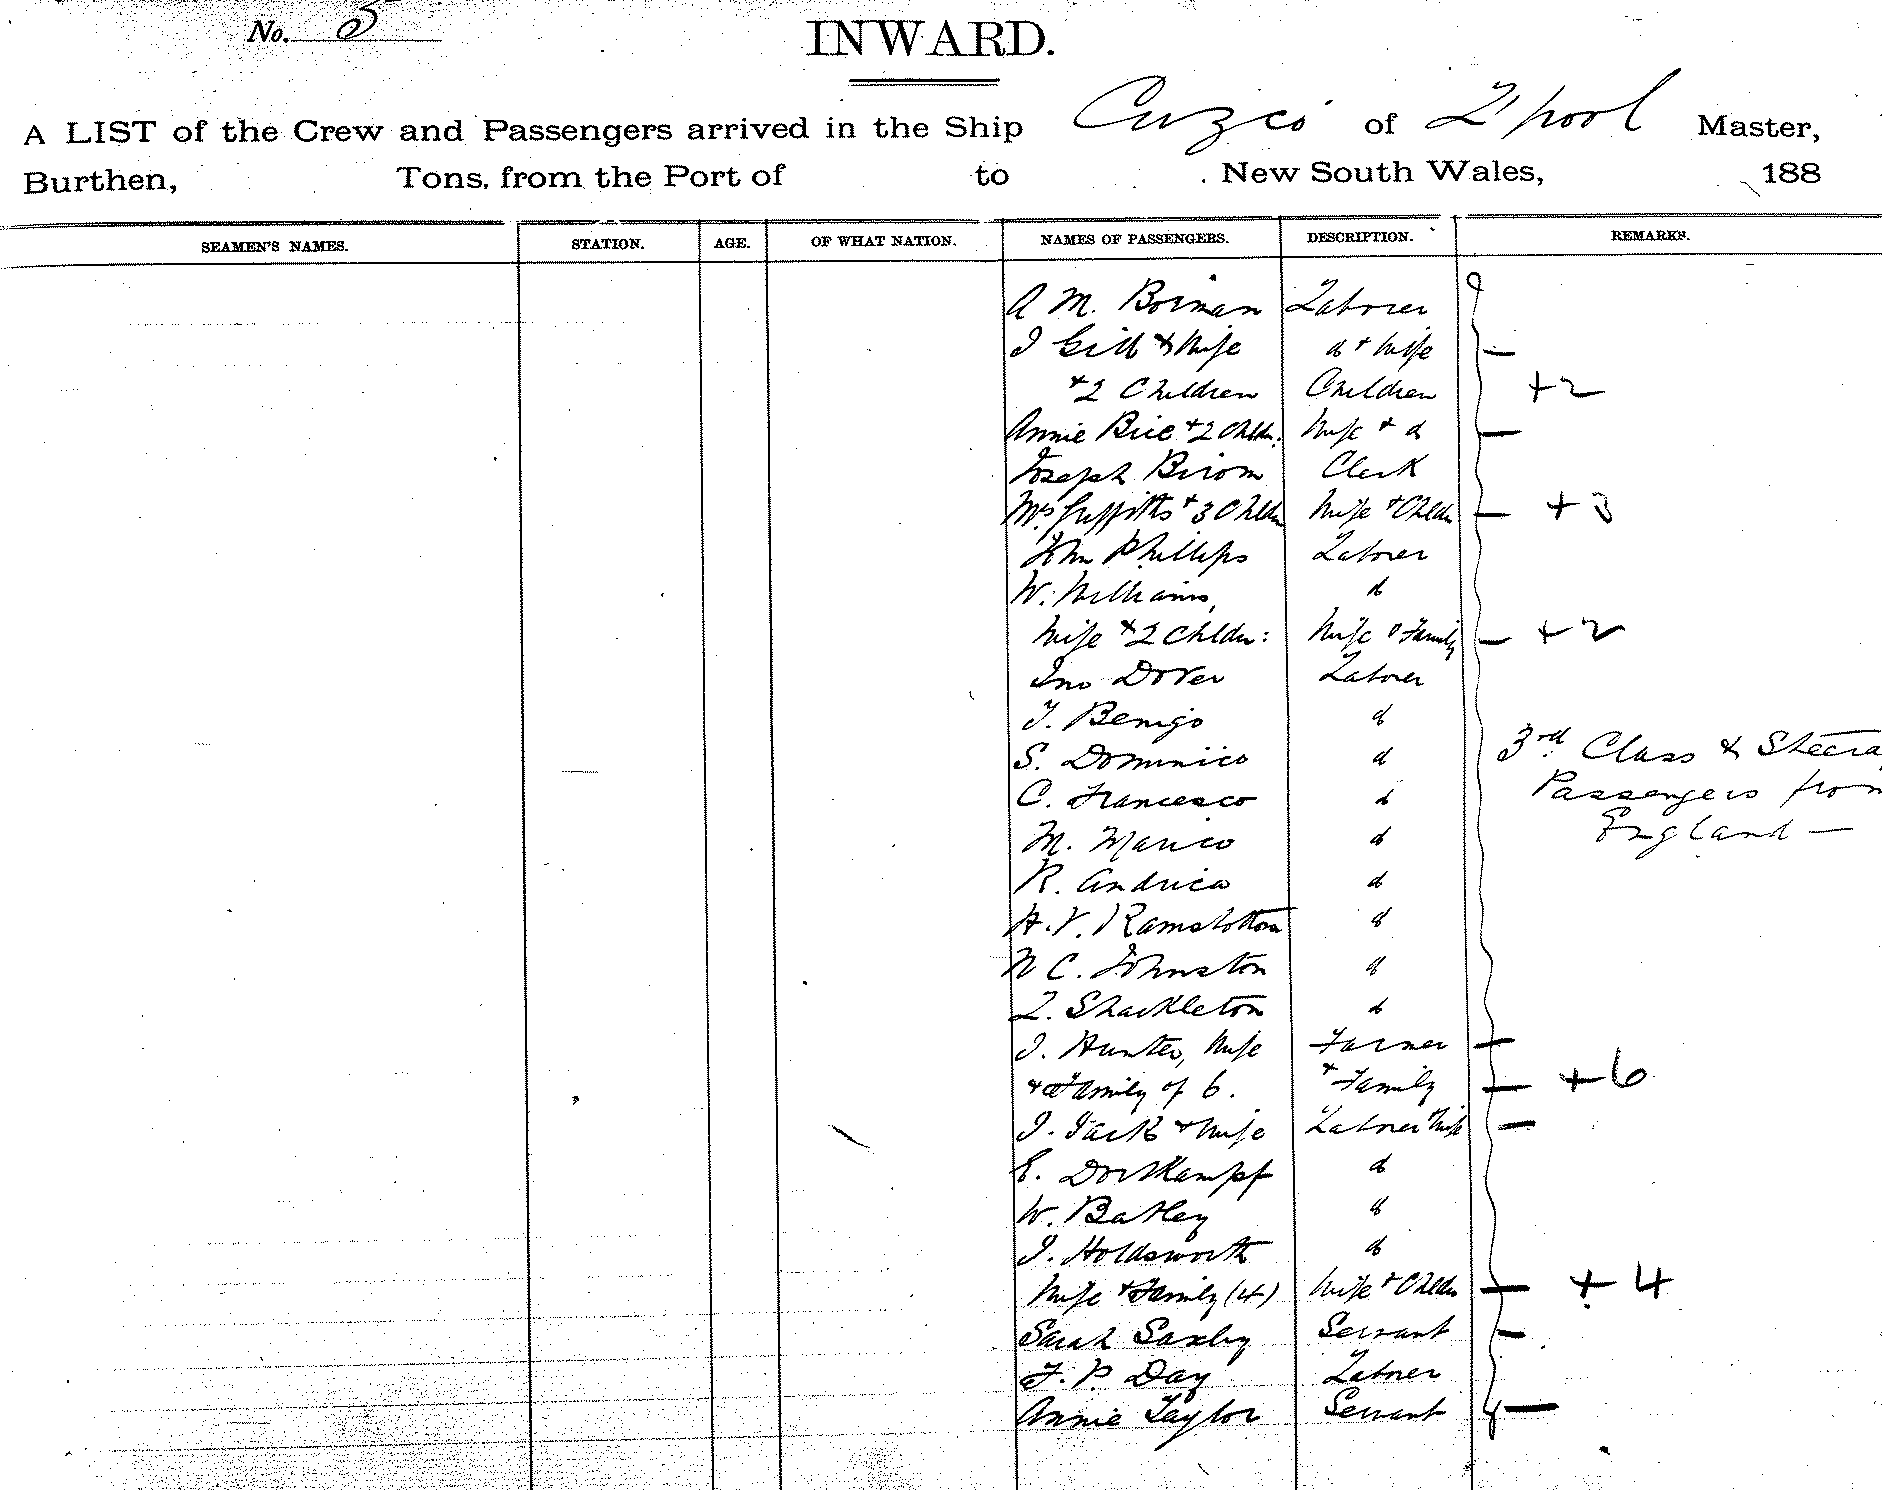 No. 5
INWARD.
A LIST of the Crew and Passengers arrived in the Ship Cuzco of L'pool Master,
Burthen, Tons, from the Port of to New South Wales, 188
SEAMEN'S NAMES. STATION. AGE. OF WHAT NATION. NAMES OF PASSENGERS. DESCRIPTION. REMARKS.
A M. Borman Laborer
J Gill & Wife d + Wife —
+ 2 Children Children +2
Annie Brie + 2 Chldn: Wife + d —
Joseph Birom Clerk
Mrs Griffitts + 3 Chldn Wife + Chldn — +3
John Phillips Laborer
W. Williams, d
Wife + 2 Chldn: Wife & Family — +2
Jno Dover Laborer
T. Benigo d
S. Dominico d
3rd Class & Steera
C. Francesco d
Passengers from
M. Marico d
England —
R. Andrica d
H. V. Ramsbottom d
N C. Johnston d
L. Shackleton d
J. Hunter, Wife Farmer —
+ Family of 6. + Family — +6
J. Jack + Wife Laborer + Wife —
E. Dortkampf d
W. Batley d
J. Holdsworth d
Wife + Family (4) Wife + Chldn — +4
Sarah Saxby Servant —
F. P. Day Laborer
Annie Taylor Servant —